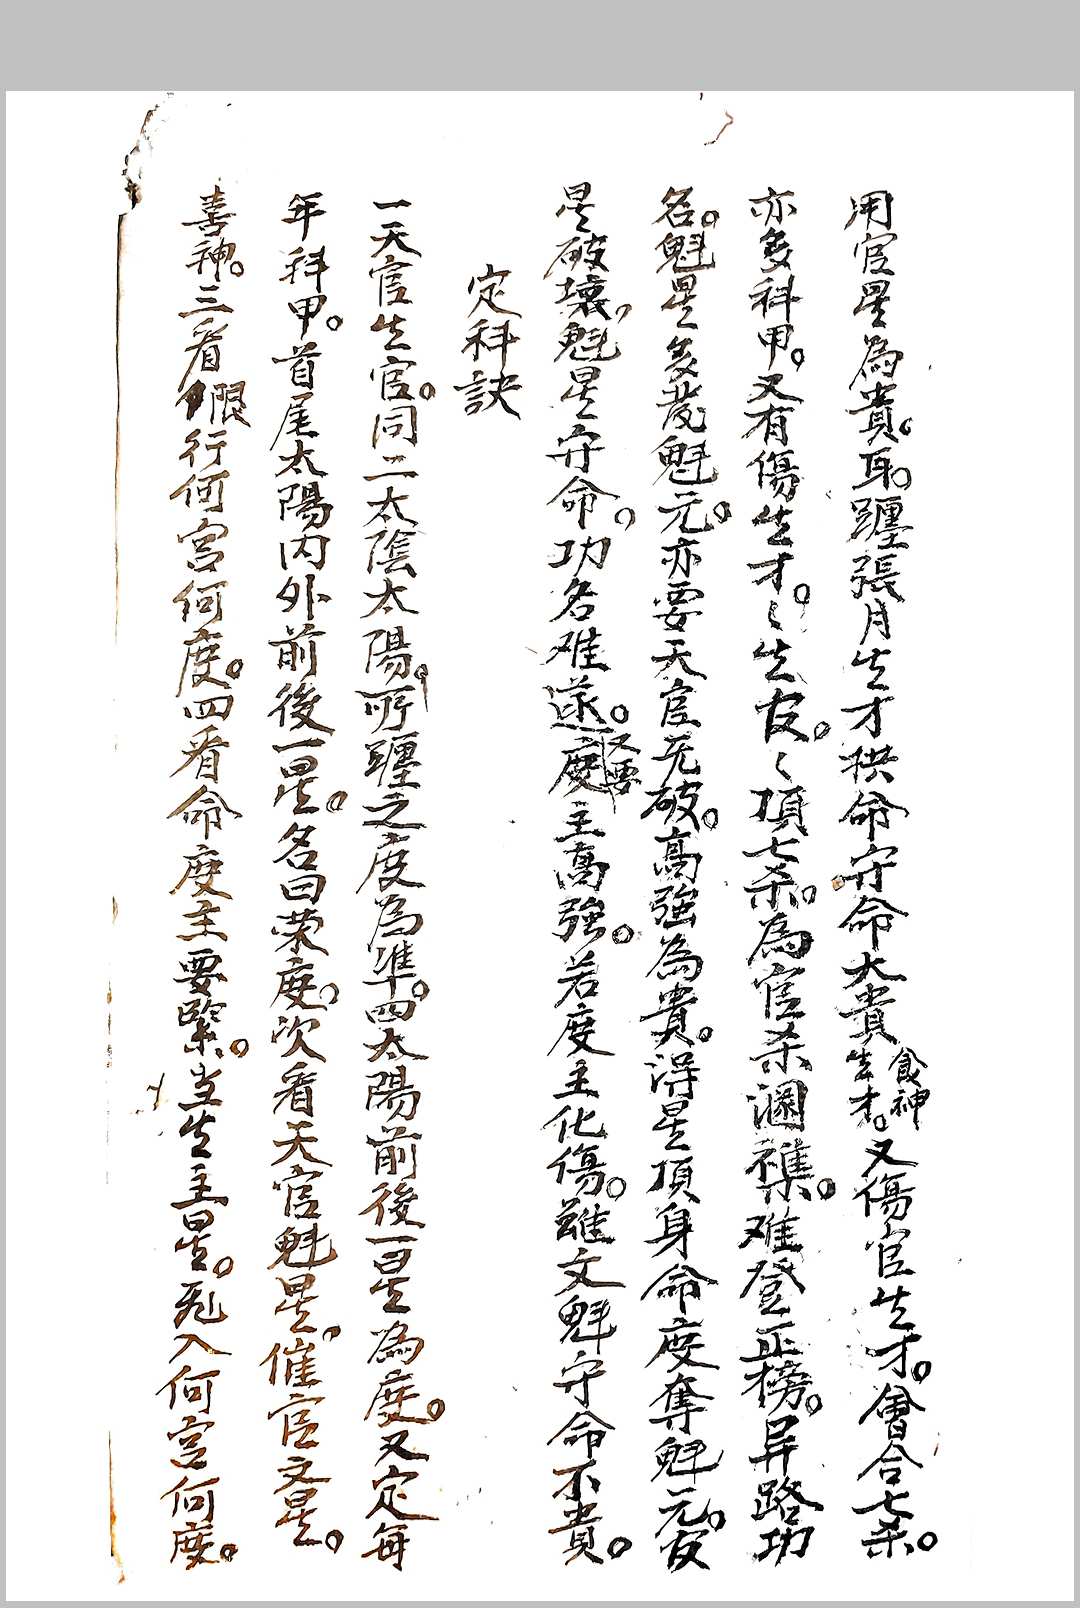 用官星為貴。耳。躔張月生才拱命守命大貴食神生才。又傷官生才。會合七杀。
亦多科甲。又有傷生才。〻生官。〻頂七杀。為官杀溷襍。难登正榜。异路功
名。魁星多發魁元。亦要天官无破。高強為貴。得星頂身命度奪魁元。官
星破壞。魁星守命。功名难遂。又要度主高強。若度主化傷。雖文魁守命不貴。
定科訣
一天官生官。同二太陰太陽。所躔之度為準。四太陽前後一星為度。又定每
年科甲。首尾太陽内外前後一星。名曰荣度。次看天官魁星。催官文星。
喜神。三看限行何宮何度。四看命度主要緊。当生主星。飛入何宮何度。